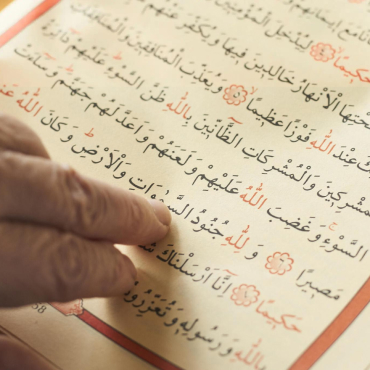 مَعَ اِيمَانِهِمْ
حَكِيمًا لِيُدْخِلَ الْمُؤْمِنِينَ
تَحْتِهَا الْاَنْهَارُ خَالِدِينَ فِيهَا وَيُكَفِّرَ عَنْهُمْ
عِنْدَ اللّٰهِ فَوْزًا عَظِيمًا وَيُعَذِّبَ الْمُنَافِقِينَ وَالْمُنَافِقَاتِ
وَالْمُشْرِكِينَ وَالْمُشْرِكَاتِ الظَّانِّينَ بِاللّٰهِ ظَنَّ السَّوْءِ عَلَيْهِمْ دَائِرَةُ
السَّوْءِ وَغَضِبَ اللّٰهُ عَلَيْهِمْ وَلَعَنَهُمْ وَاَعَدَّ لَهُمْ جَهَنَّمَ وَسَاءَتْ
مَصِيرًا وَلِلّٰهِ جُنُودُ السَّمٰوَاتِ وَالْاَرْضِ وَكَانَ اللّٰهُ
حَكِيمًا اِنَّا اَرْسَلْنَاكَ
بِاللّٰهِ وَرَسُولِهِ وَتُعَزِّرُوهُ
58